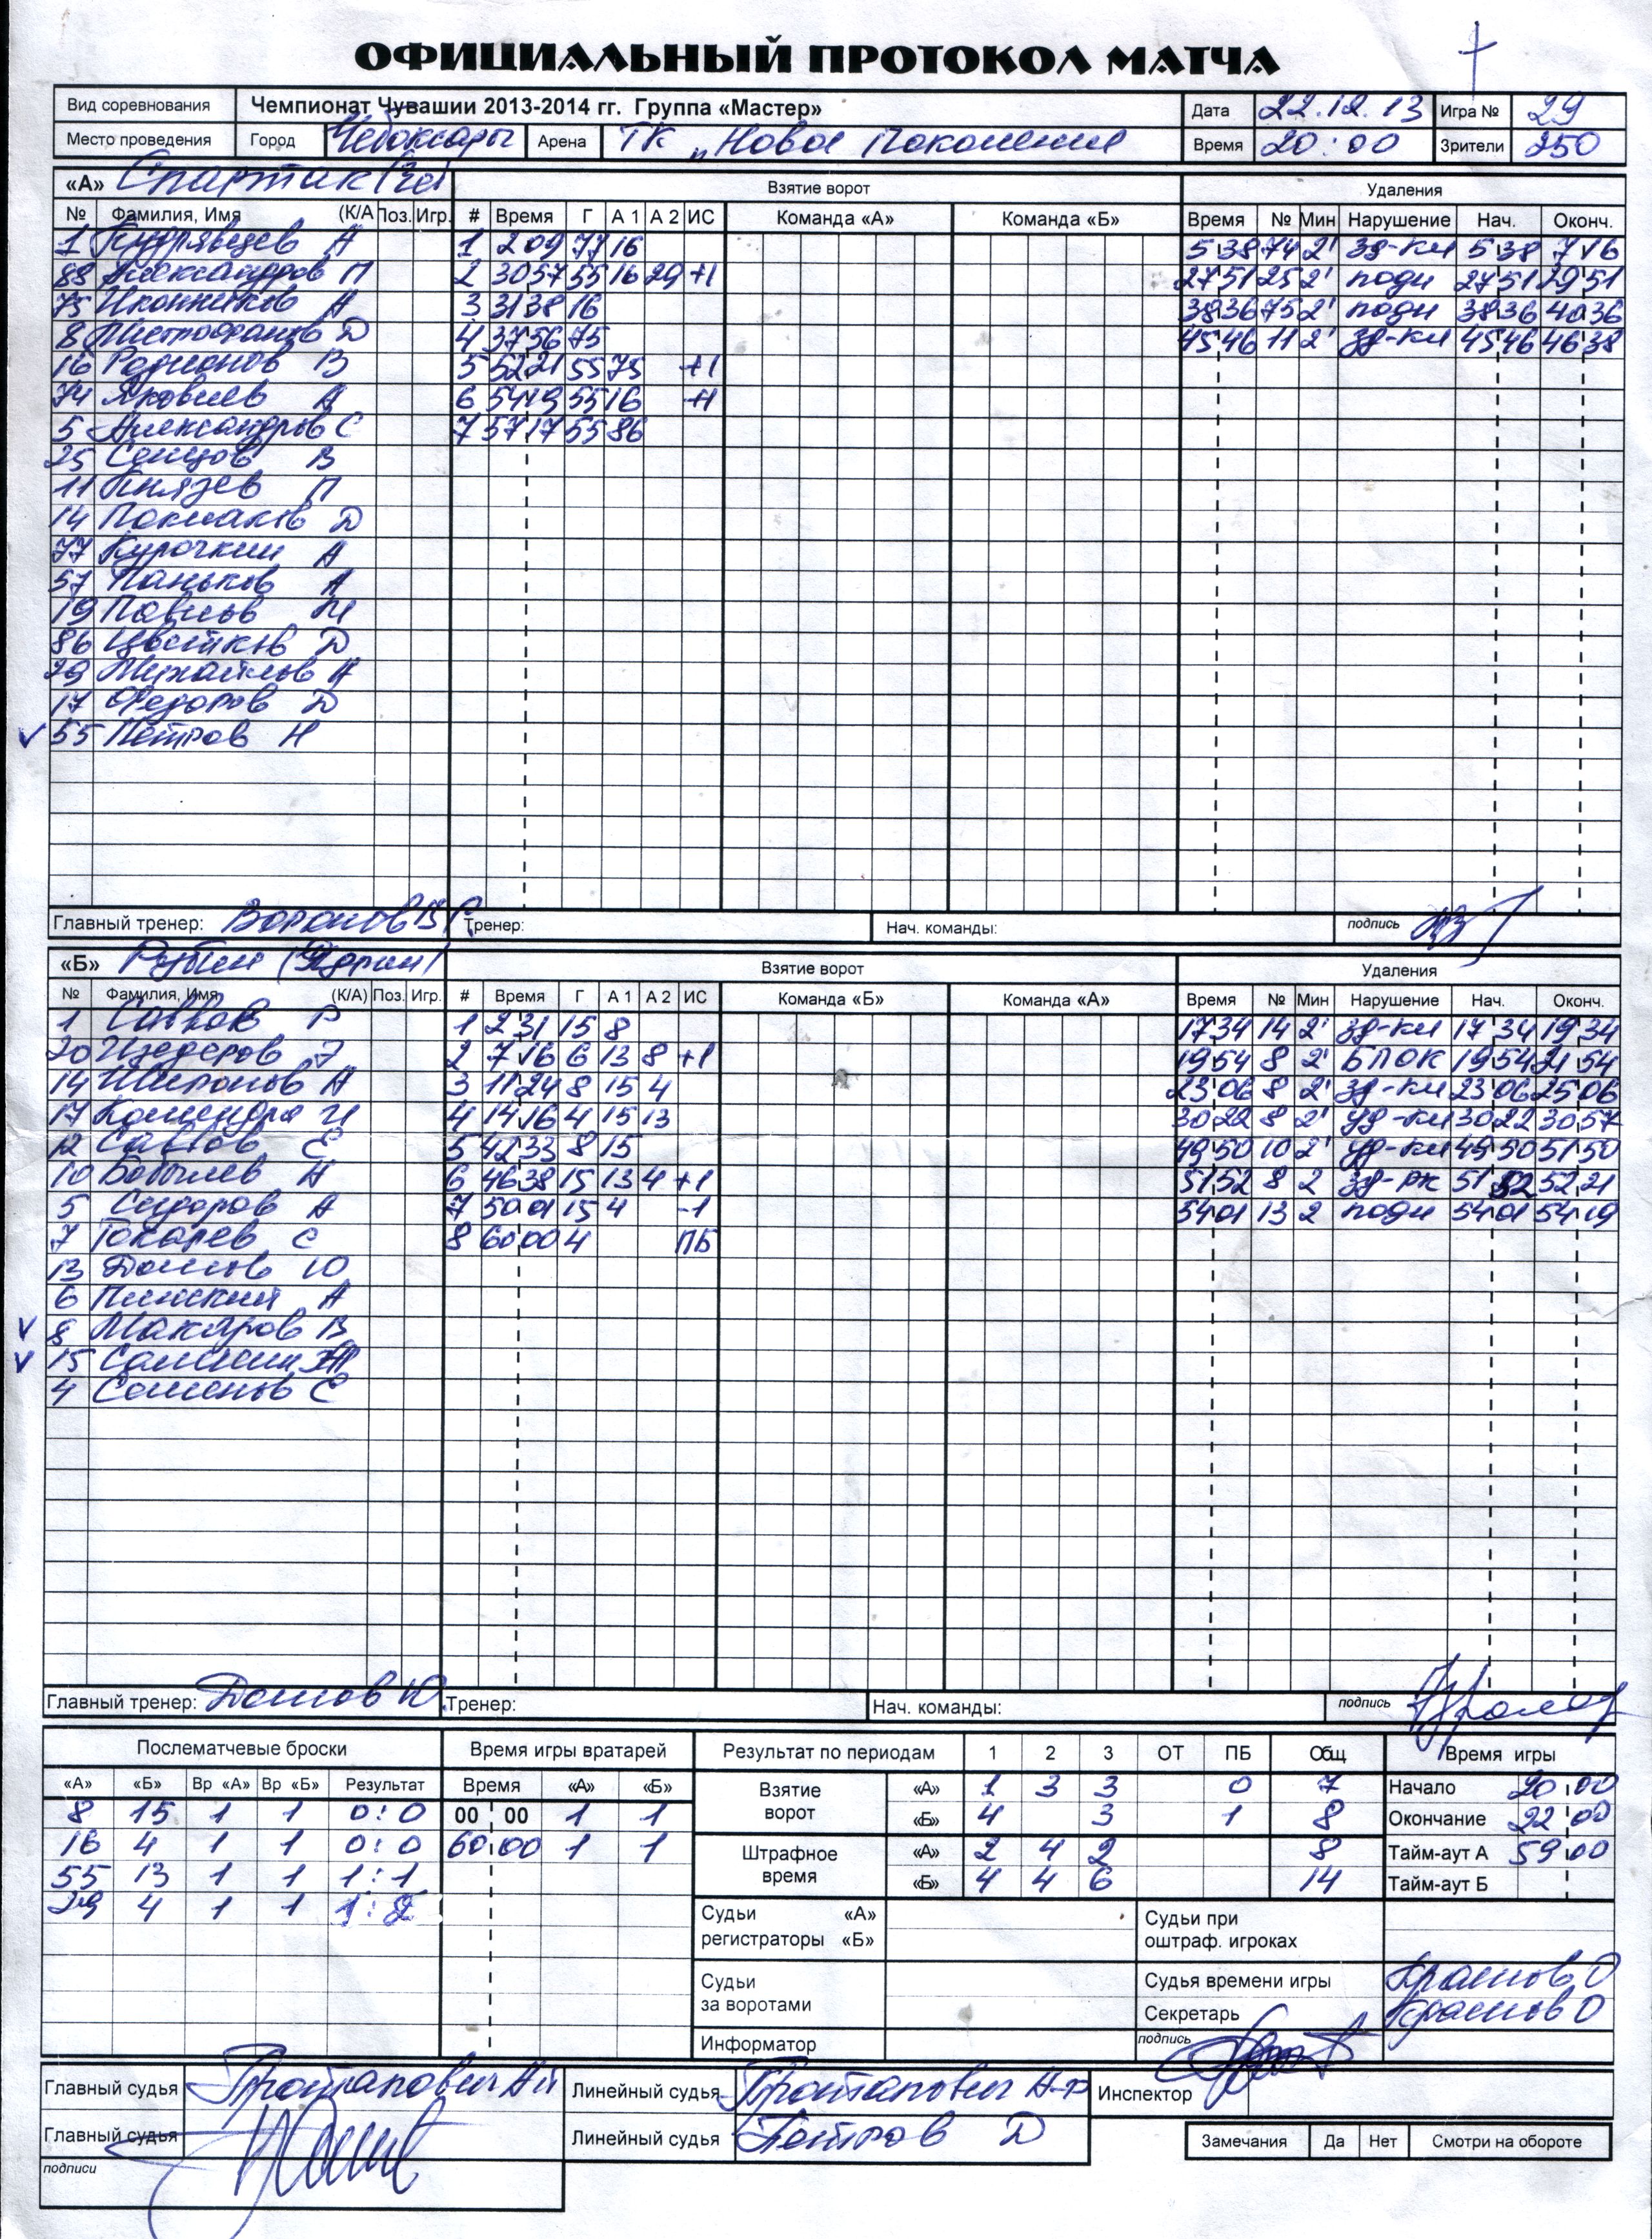 ОФИЦИАЛЬНЫЙ ПРОТОКОЛ МАТЧА
Вид соревнования Чемпионат Чувашии 2013-2014 гг. Группа «Мастер» Дата 22.12.13 Игра № 29
Место проведения Город Чебоксары Арена ТК „Новое Поколение Время 20:00 Зрители 250
«А» Спартак Взятие ворот Удаления
№ Фамилия, Имя (К/А Поз. Игр. # Время Г А 1 А 2 ИС Команда «А» Команда «Б» Время № Мин Нарушение Нач. Оконч.
1 Кудрявцев А 1 2 09 77 16 5 38 74 2' зд-кл 5 38 7 16
88 Александров П 2 30 57 55 16 29 +1 27 51 25 2' подн 27 51 29 51
75 Иконников А 3 31 38 16 38 36 75 2' подн 38 36 40 36
8 Митрофанов D 4 37 56 75 45 46 11 2' зд-кл 45 46 46 38
16 Родионов В 5 52 21 55 75 +1
74 Яковлев А 6 54 19 55 16 +1
5 Александров С 7 57 17 55 86
25 Сенцов В
11 Князев П
14 Покмаков D
77 Курочкин А
57 Паньков А
19 Павлов И
86 Цветков D
29 Михайлов А
17 Федоров D
55 Петров Н
Главный тренер: Воронов В Тренер: Нач. команды: подпись
«Б» Рубин (Ядрин) Взятие ворот Удаления
№ Фамилия, Имя (К/А) Поз. Игр. # Время Г А 1 А 2 ИС Команда «Б» Команда «А» Время № Мин Нарушение Нач. Оконч.
1 Савков Р 1 2 31 15 8 17 34 14 2' зд-кл 17 34 19 34
20 Изедеров Э 2 7 16 6 13 8 +1 19 54 8 2' БЛОК 19 54 21 54
14 Широнов А 3 11 24 8 15 4 23 06 8 2' зд-кл 23 06 25 06
17 Комендра И 4 14 16 4 15 13 30 22 8 2' уд-кл 30 22 30 57
12 Савлов Е 5 42 33 8 15 49 50 10 2' уд-кл 49 50 51 50
10 Бобылев А 6 46 38 15 13 4 +1 51 52 8 2 зд-рк 51 52 52 21
5 Сидоров А 7 50 01 15 4 -1 54 01 13 2 подн 54 01 54 19
7 Токарев С 8 60 00 4 ПБ
13 Данилов Ю
6 Пинский А
8 Макаров В
15 Самылкин
4 Семенов Е
Главный тренер: Данилов Ю. Тренер: Нач. команды: подпись
Послематчевые броски Время игры вратарей Результат по периодам 1 2 3 ОТ ПБ Общ Время игры
«А» «Б» Вр «А» Вр «Б» Результат Время «А» «Б» Взятие ворот «А» 1 3 3 0 7 Начало 20 00
8 15 1 1 0:0 00 00 1 1 «Б» 4 3 1 8 Окончание 22 00
16 4 1 1 0:0 60 00 1 1 Штрафное время «А» 2 4 2 8 Тайм-аут А 59 00
55 13 1 1 1:1 «Б» 4 4 6 14 Тайм-аут Б
29 4 1 1 1:2
Судьи регистраторы «А» «Б» Судьи при оштраф. игроках
Судьи за воротами Судья времени игры Крашов О
Секретарь Крашов О
Информатор подпись
Главный судья Протапович Линейный судья Протапович Инспектор
Главный судья Линейный судья Петров D Замечания Да Нет Смотри на обороте
подписи